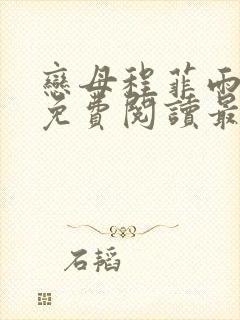 戀母程菲雨
免費閱讀最
石韜